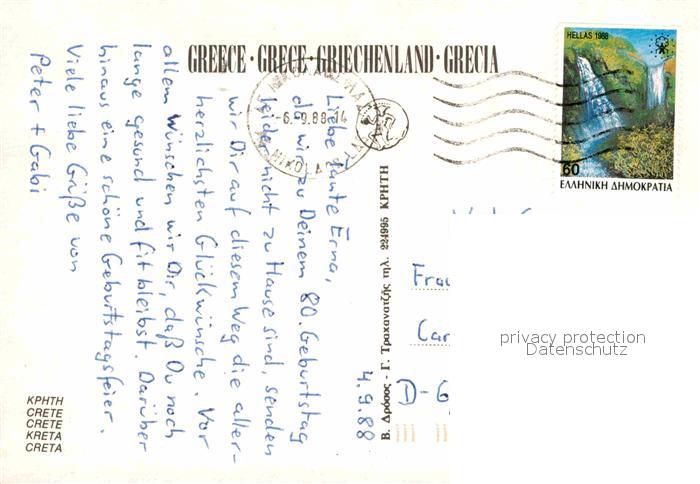 GREECE · GRECE · GRIECHENLAND · GRECIA
HELLAS 1988
60
ΕΛΛΗΝΙΚΗ ΔΗΜΟΚΡΑΤΙΑ
-6.-9.88.14
Liebe Tante Erna,
da wir zu Deinem 80. Geburtstag
leider nicht zu Hause sind, senden
wir Dir auf diesem Weg die aller-
herzlichsten Glückwünsche. Vor
allem wünschen wir Dir, daß Du noch
lange gesund und fit bleibst. Darüber
hinaus eine schöne Geburtstagsfeier.
Viele liebe Grüße von
Peter + Gabi
4.9.88
Β. Δρόσος - Γ. Τραχανατζής τηλ. 224995 ΚΡΗΤΗ
Frau
Car
D-6
privacy protection
Datenschutz
ΚΡΗΤΗ
CRETE
CRETE
KRETA
CRETA